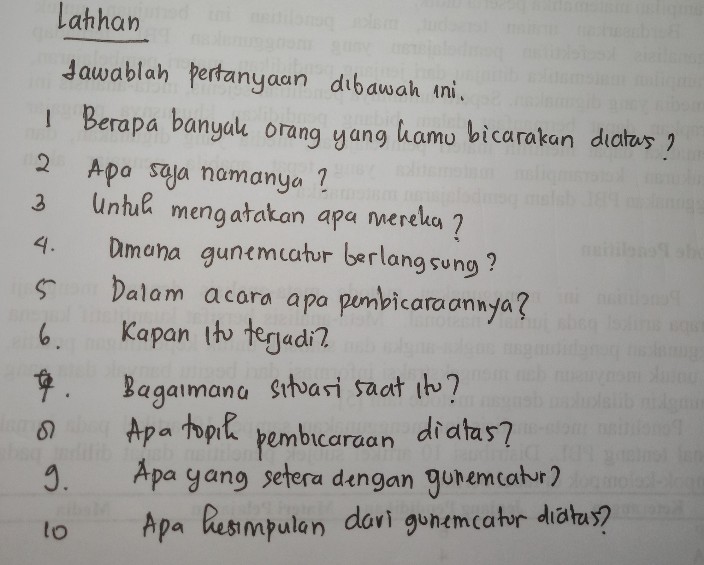 Latihan
Jawablah pertanyaan dibawah ini.
1 Berapa banyak orang yang kamu bicarakan diatas?
2 Apa saja namanya?
3 Untuk mengatakan apa mereka?
4. Dimana gunemcatur berlangsung?
5 Dalam acara apa pembicaraannya?
6. Kapan itu terjadi?
7. Bagaimana situasi saat itu?
8 Apa topik pembicaraan diatas?
9. Apa yang setera dengan gunemcatur?
10 Apa kesimpulan dari gunemcatur diatas?